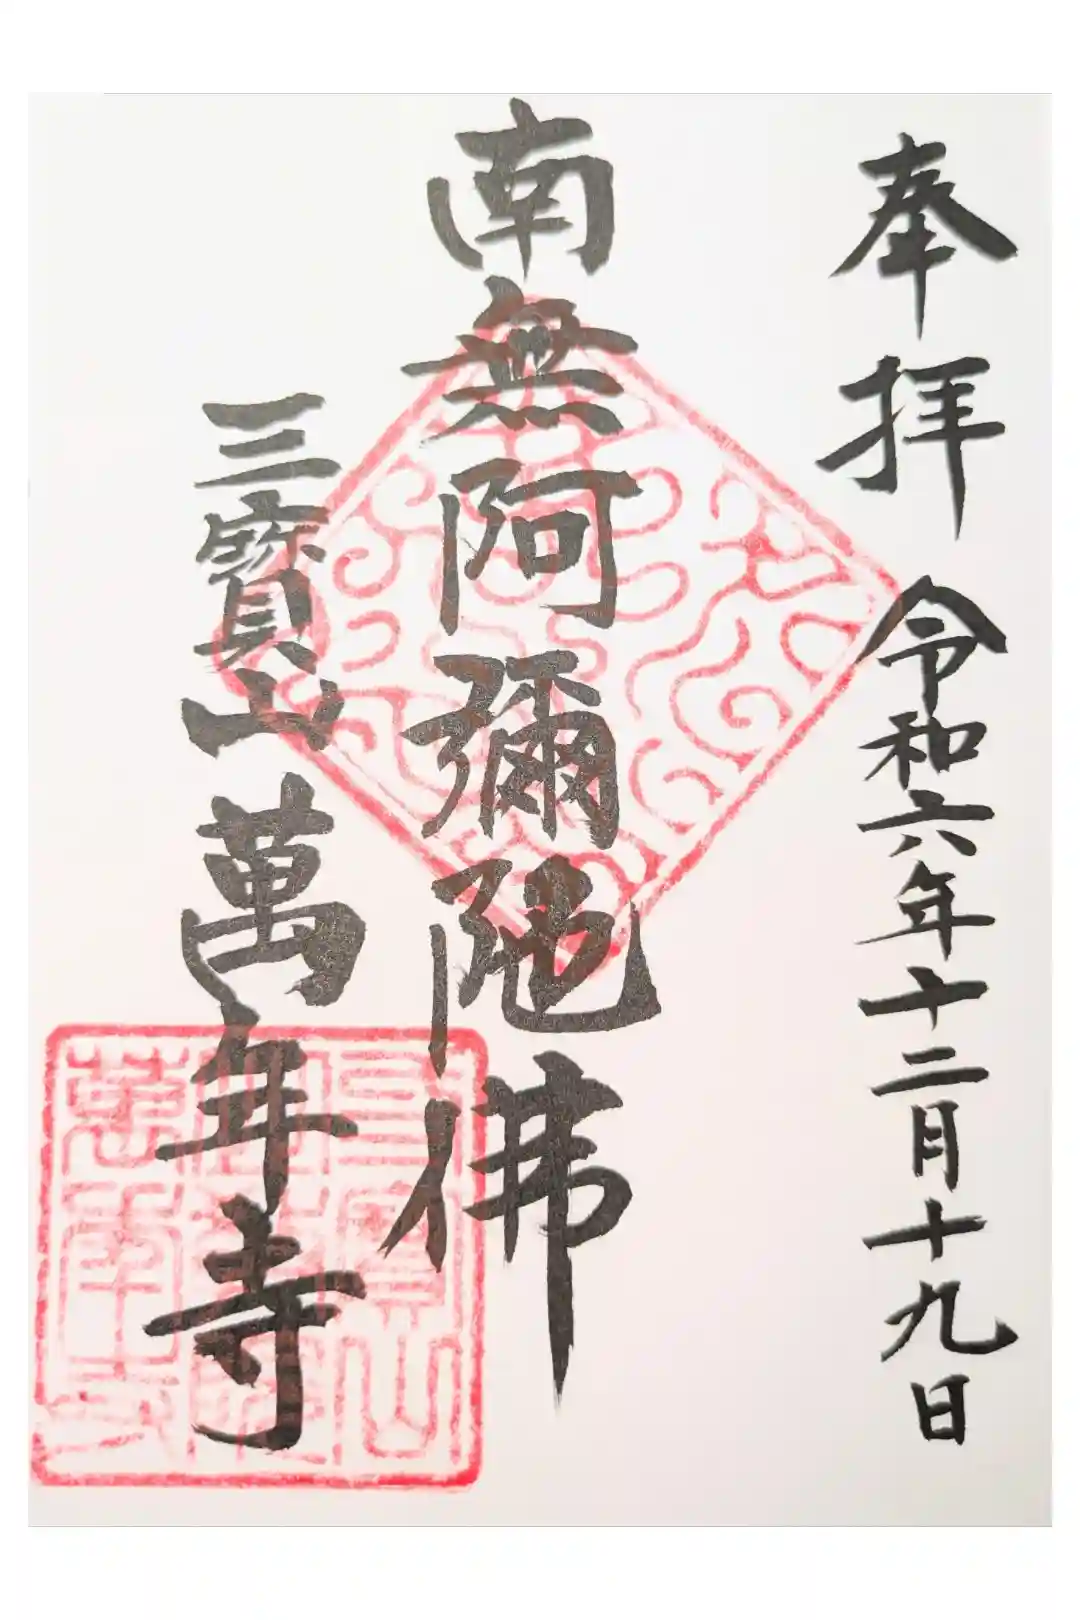 奉拝
令和六年十二月十九日
南無阿彌陀佛
三寳山萬年寺